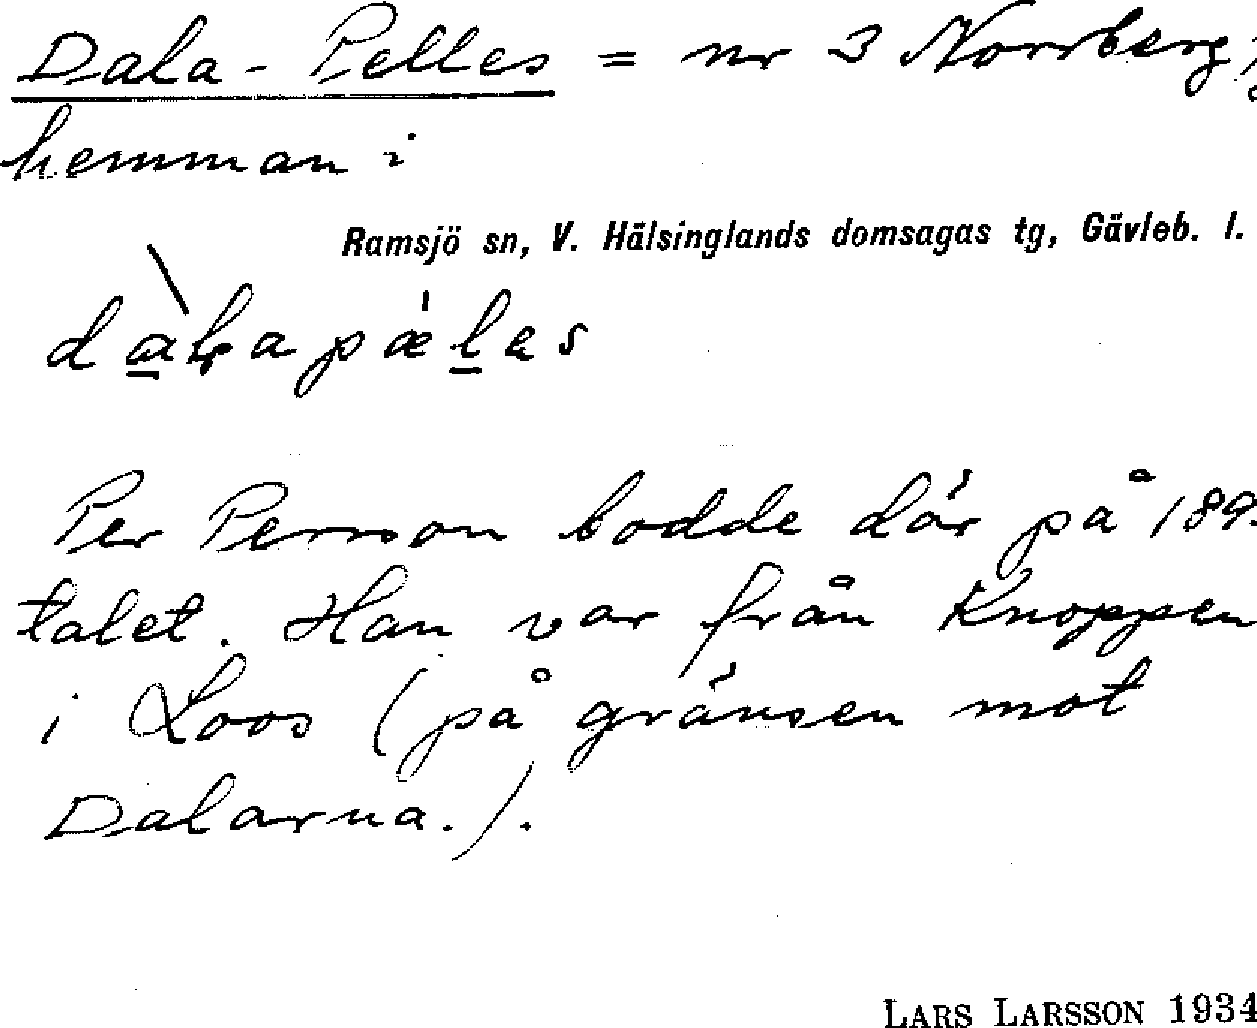 Dala-Pelles = nr 3 Norrberg,
hemman i
Ramsjö sn, V. Hälsinglands domsagas tg, Gävleb. l.
Per Persson bodde där på 189
talet. Han var från Knoppen
i Loos (på gränsen mot
Dalarna.).
LARS LARSSON 1934